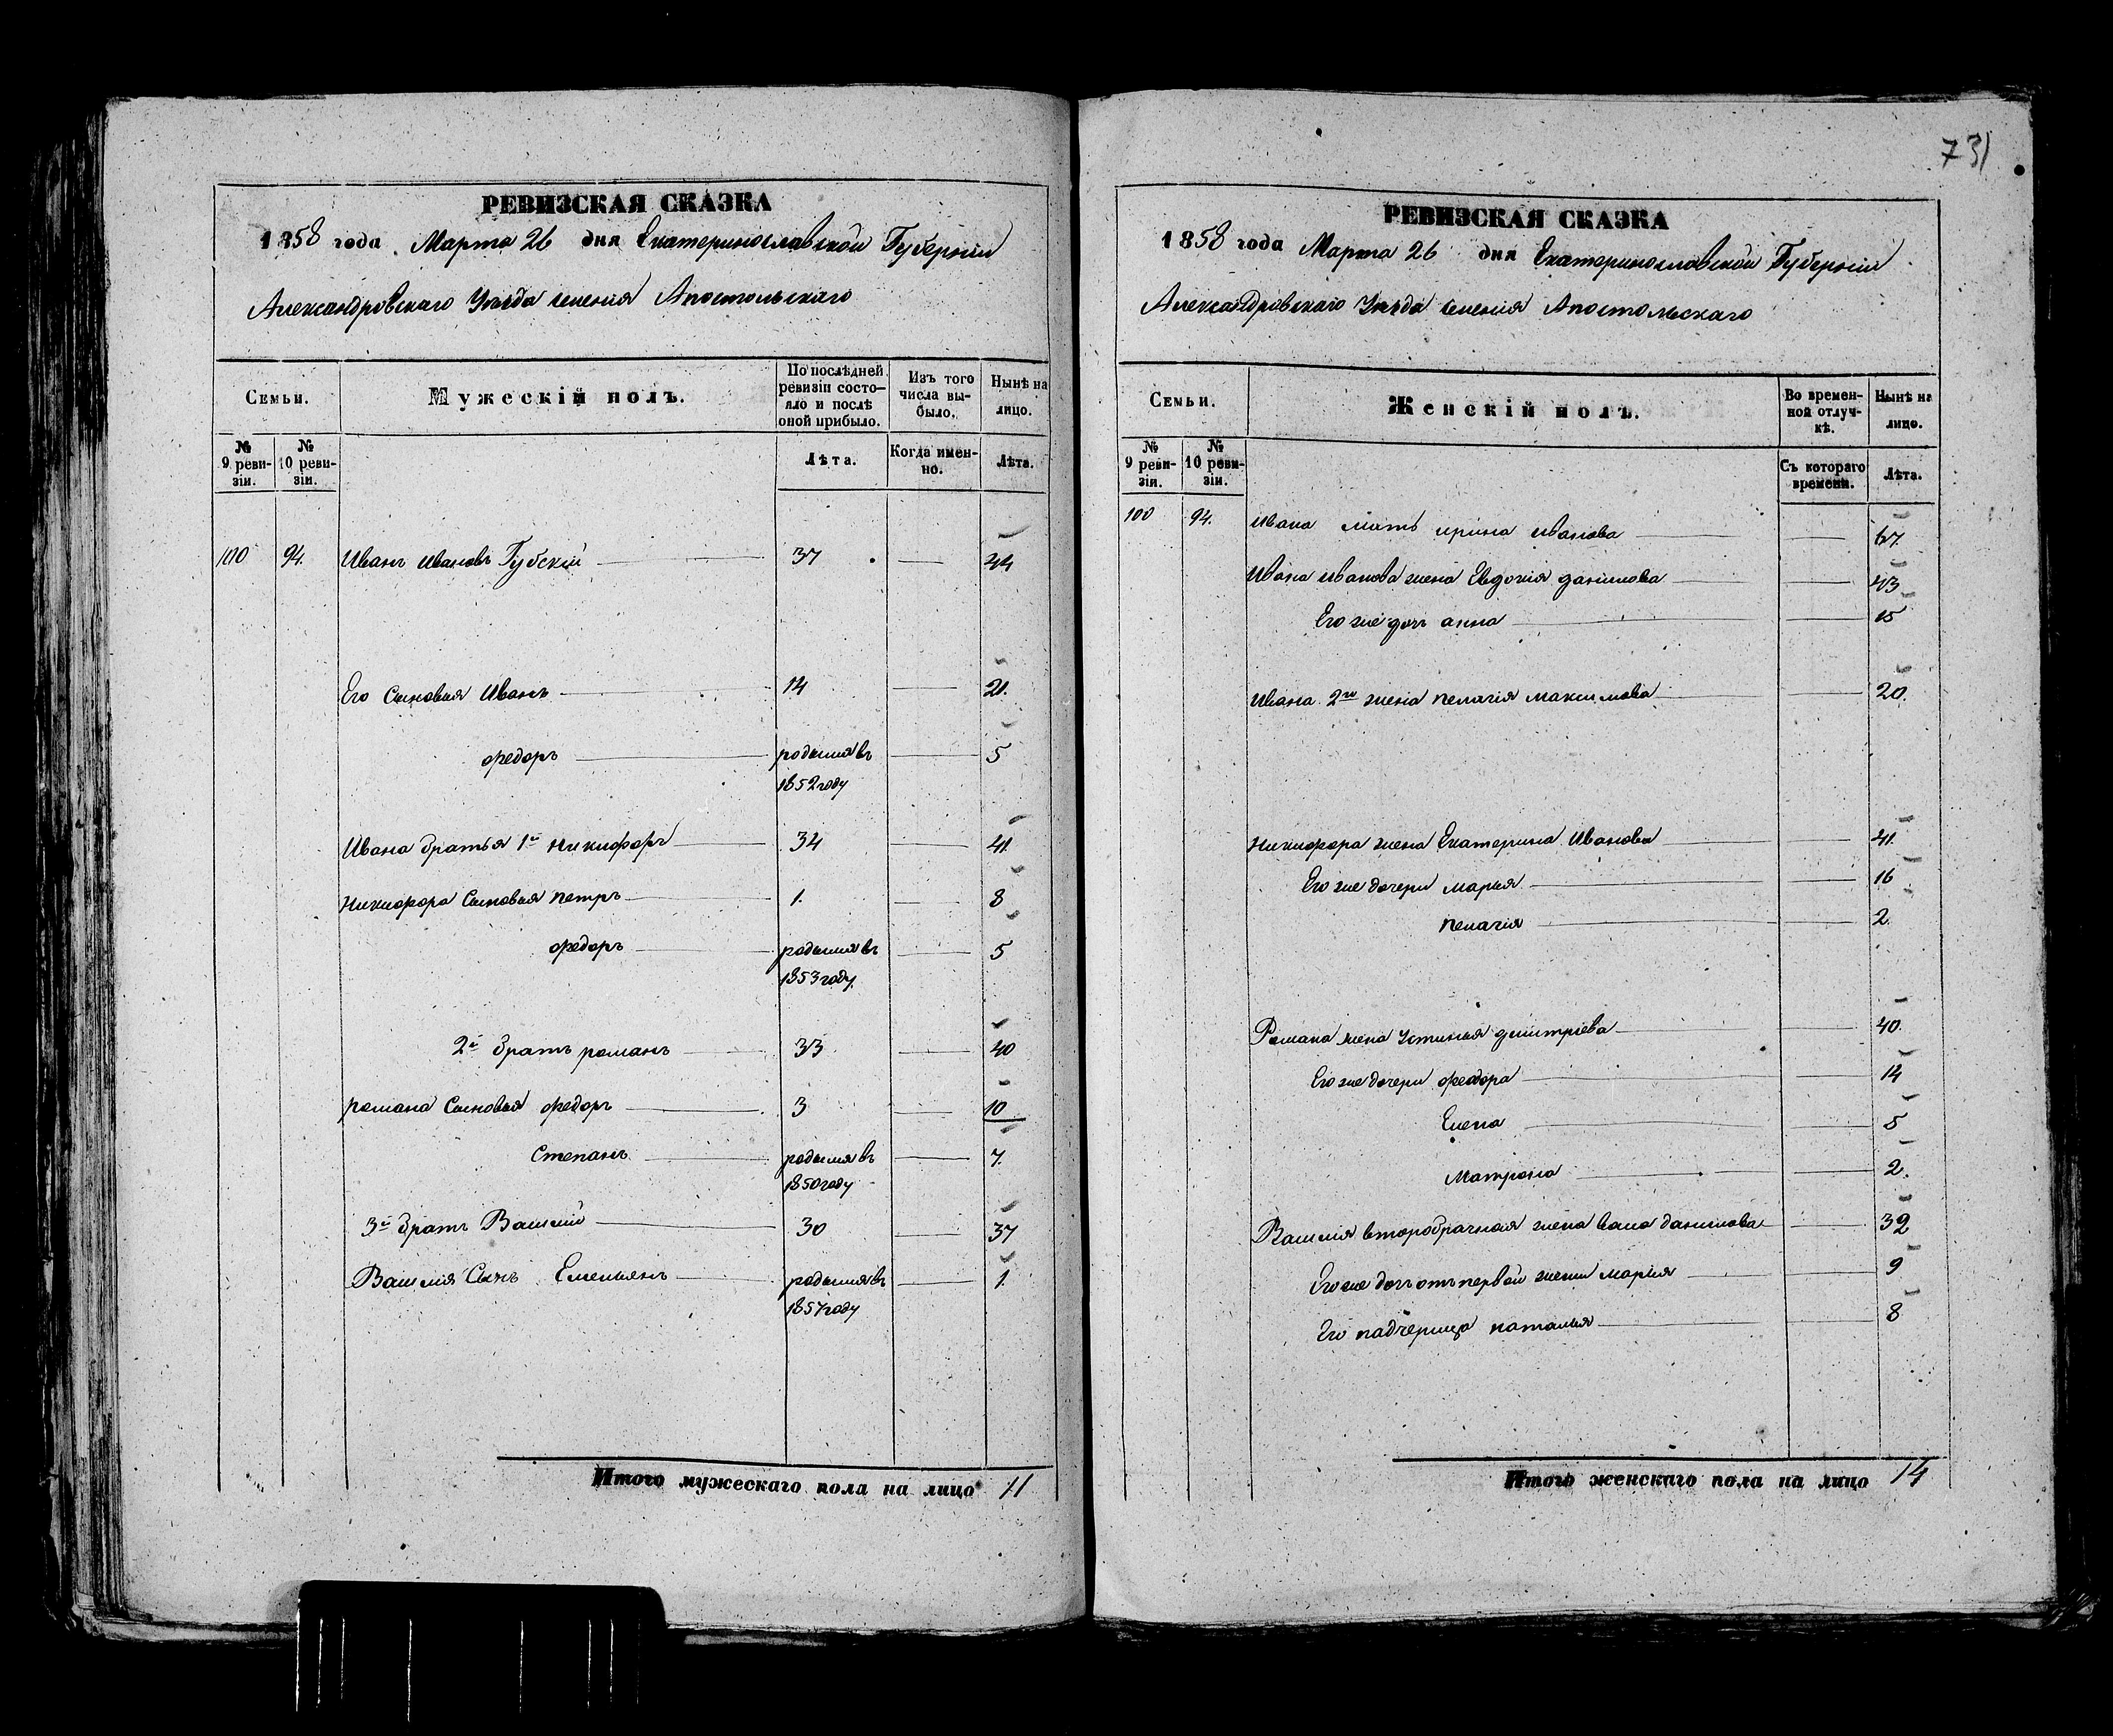 РЕВИЗСКАЯ СКАЗКА
1858 года Марта 26 дня Екатеринославской Губерніи
Александровскаго Уѣзда селенія Апостольскаго
Семьи.
Мужескій полъ.
По послѣдней ревизіи состо-
яло и послѣ
оной прибыло.
Изъ того
числа вы-
было.
Нынѣ на
лицо.
№
9 реви-
зіи.
№
10 реви-
зіи.
Лѣта.
Когда имен-
но.
Лѣта.
100 94. Иванъ Ивановъ Губскій 37 44
Его Сыновья Иванъ 14 21.
федоръ родился въ 5
1852 году
Ивана братья 1й Никифоръ 34 41.
Никифора Сыновья петръ 1. 8
федоръ родился въ 5
1853 году
2й братъ романъ 33 40
романа Сыновья федоръ 3 10
Степанъ родился въ 7.
1850 году
3й братъ Василій 30 37
Василія Сынъ Емельянъ родился въ 1.
1857 году
Итого мужескаго пола на лицо 11
731
РЕВИЗСКАЯ СКАЗКА
1858 года Марта 26 дня Екатеринославской Губерніи
Александровскаго Уѣзда селенія Апостольскаго
Семьи.
Женскій полъ.
Во времен-
ной отлуч-
кѣ.
Нынѣ на
лицо.
№
9 реви-
зіи.
№
10 реви-
зіи.
Съ котораго
времени.
Лѣта.
100 94. Ивана мать ирина иванова 67
Ивана иванова жена Евдокія данилова 43
Его же дочь анна 15
Ивана 2го жена пелагія максимова 20.
Никифора жена Екатерина Иванова 41.
Его же дочери марья 16
пелагія 2.
Романа жена Устинья дмитріева 40.
Его же дочери феодора 14
Елена 5
Матрона 2.
Василія второбрачная жена данилова 32
Его же дочь отъ первой жены марія 9
Его падчерица наталья 8
Итого женскаго пола на лицо 14